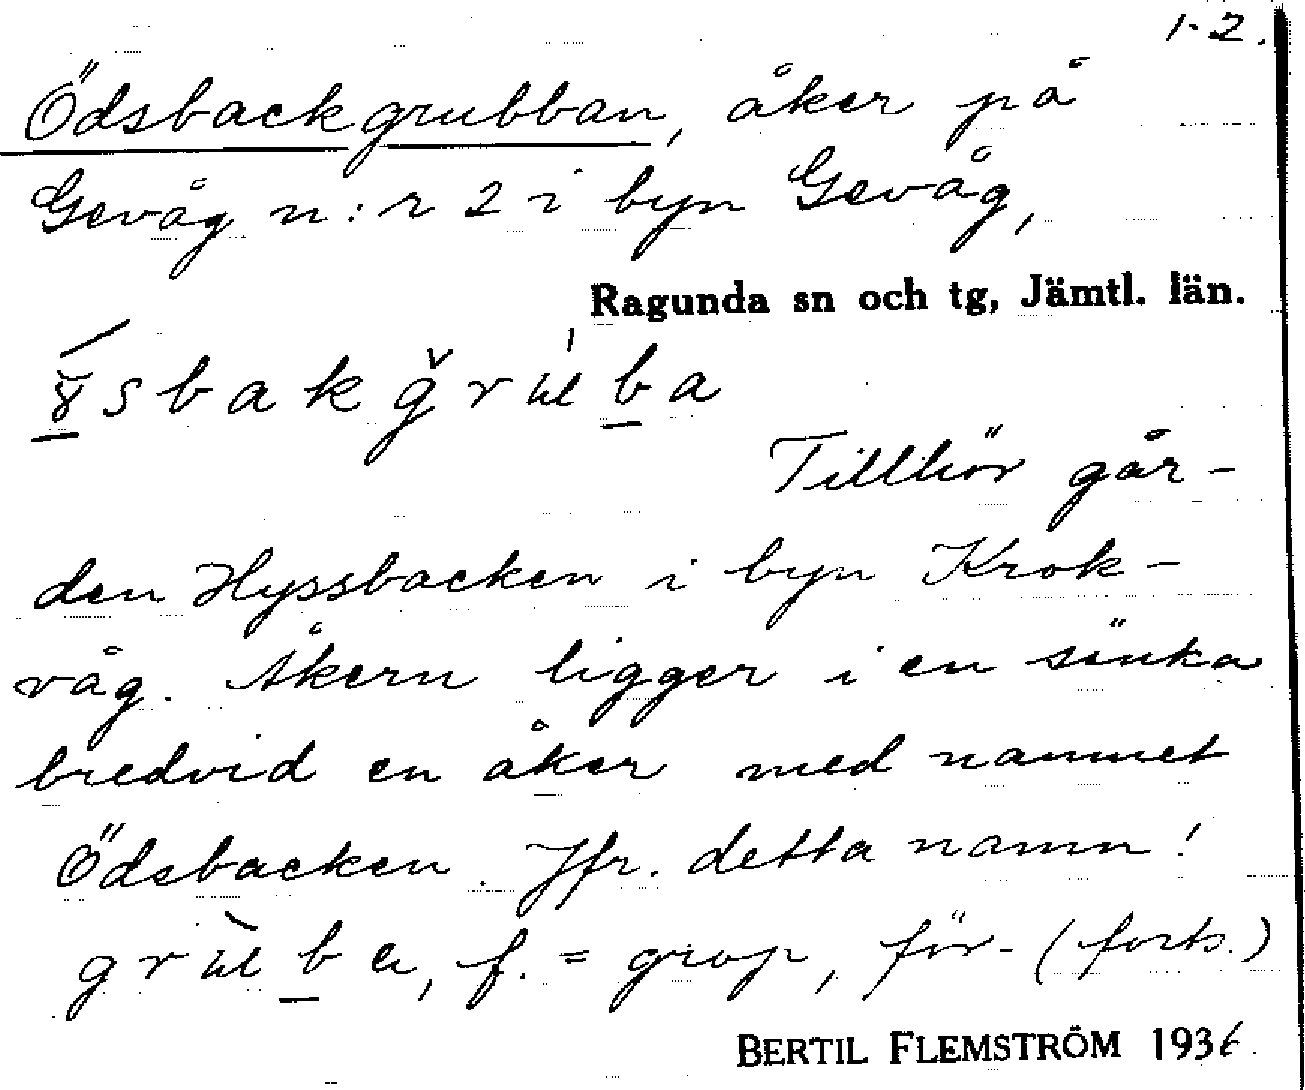 1-2.
Ödsbackgrubban, åker på
Gevåg n:r 2 i byn Gevåg,
Ragunda sn och tg, Jämtl. län.
Tillhör går-
den Hyssbacken i byn Krok-
våg. Åkern ligger i en sänka
bredvid en åker med namnet
Ödsbacken. Jfr. detta namn!
f. = grop, för- (forts.)
BERTIL FLEMSTRÖM 1936.